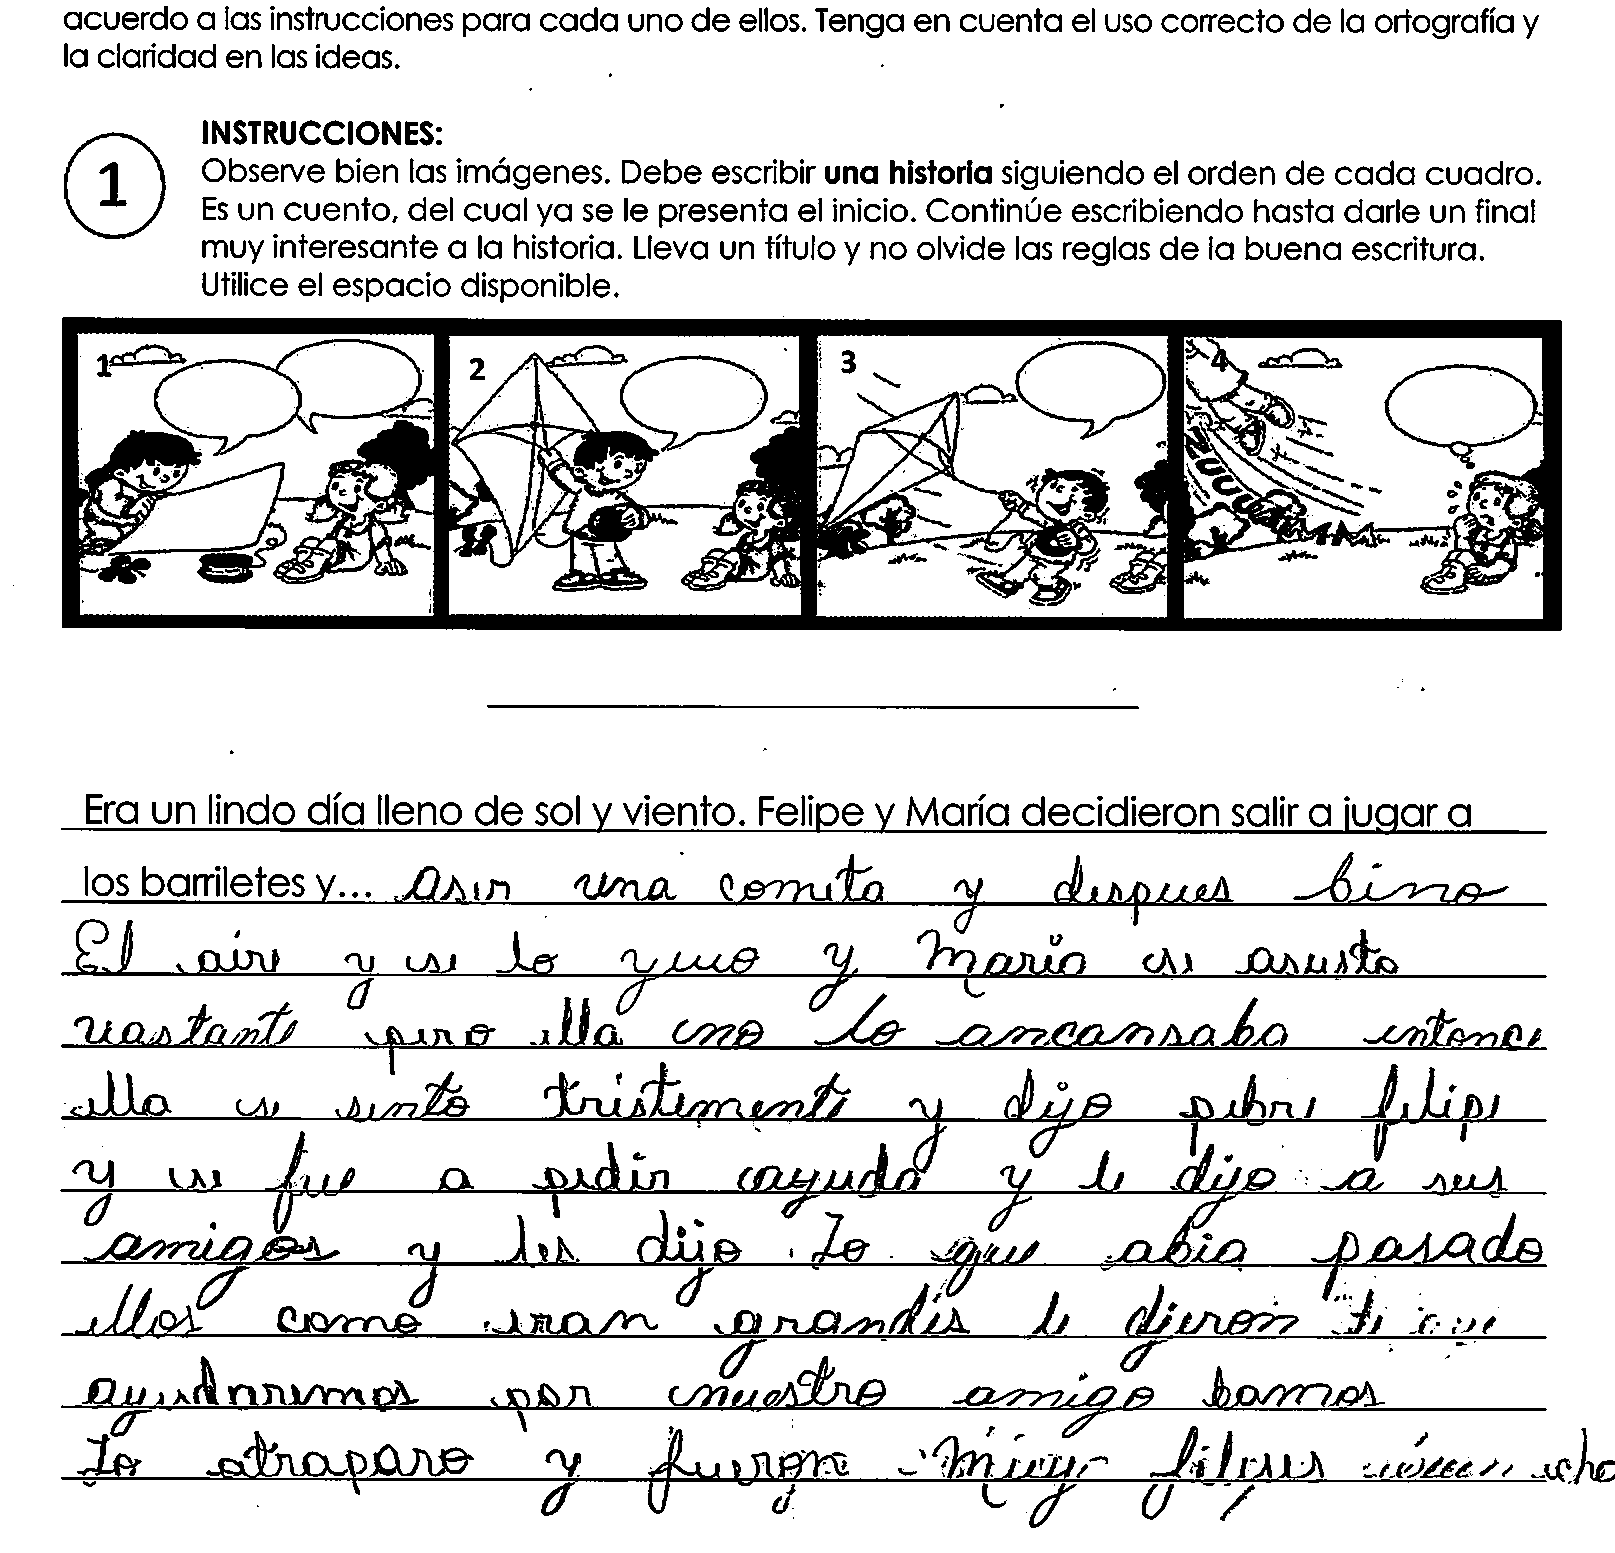 acuerdo a las instrucciones para cada uno de ellos. Tenga en cuenta el uso correcto de la ortografía y
la claridad en las ideas.
1
INSTRUCCIONES:
Observe bien las imágenes. Debe escribir una historia siguiendo el orden de cada cuadro.
Es un cuento, del cual ya se le presenta el inicio. Continúe escribiendo hasta darle un final
muy interesante a la historia. Lleva un título y no olvide las reglas de la buena escritura.
Utilice el espacio disponible.
1 2 3 4
Era un lindo día lleno de sol y viento. Felipe y María decidieron salir a jugar a
los barriletes y... aser una cometa y despues bino
El aire y se lo yevo y María se asusto
vastante pero ella no lo ancansaba entonce
ella se sento tristemente y dijo pobre felipe
y se fue a pedir ayuda y le dijo a sus
amigos y les dijo lo que abia pasado
ellos como eran grandes le dijeron te
ayudaremos por nuestro amigo bamos
lo atraparo y fueron muy felises